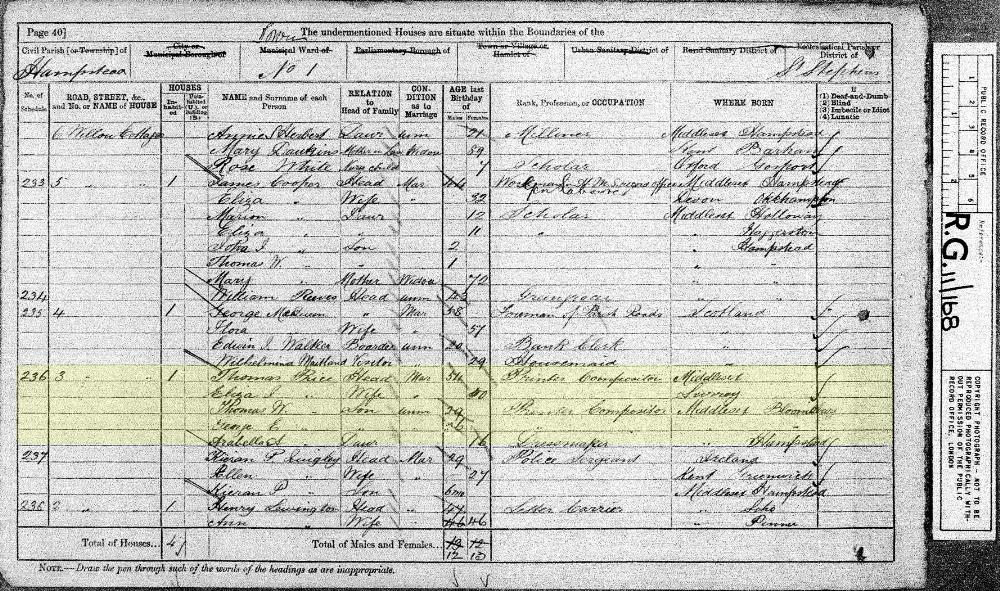 Page 40] The undermentioned Houses are situate within the Boundaries of the
Civil Parish [or Township] of City or Municipal Borough of Municipal Ward of Parliamentary Borough of Town or Village or Hamlet of Urban Sanitary District of Rural Sanitary District of Ecclesiastical Parish or District of
Hampstead No 1 St Stephens
No. of Schedule ROAD, STREET, &c., and No. or NAME of HOUSE HOUSES Inhabited NAME and Surname of each Person RELATION to Head of Family CONDITION as to Marriage AGE last Birthday of Males Females Rank, Profession, or OCCUPATION WHERE BORN If (1) Deaf-and-Dumb (2) Blind (3) Imbecile or Idiot (4) Lunatic
6 Willow Cottages Annie Herbert Daur unm 21 Milliner Middlesex Hampstead
Mary Dawkins Mother in Law Widow 59 Kent
Rose White Nurse child 7 Scholar Oxford
233 5 " " 1 James Cooper Head Mar 44 Middlesex Hampstead
Eliza " Wife " 32 Devon Okehampton
Marion " Daur 12 Scholar Middlesex Holloway
Eliza " " 11 " " Haggerston
John J. " Son 2 " Hampstead
Thomas W. " " 1 " "
Mary " Mother Widow 72 " "
234 William Reeves Head unm 42 " "
235 4 " 1 George " Mar 58 Foreman of Parish Roads Scotland
Flora " Wife " 57 "
Edwin J. Walker Boarder unm 20 Bank Clerk
Wilhelmina Maitland Visitor " 29 Housemaid
236 3 " 1 Thomas Price Head Mar 54 Printer Compositor Middlesex
Eliza " Wife " 50 Surrey
Thomas W. " Son unm 29 Printer Compositor Middlesex Bloomsbury
George E. " " " 26 " " "
Arabella A " Daur 16 Dressmaker " Hampstead
237 Kieran P Quigley Head Mar 29 Police Sergeant Ireland
Ellen " Wife " 27 Kent Greenwich
Kieran P " Son 6m Middlesex Hampstead
238 2 " 1 Henry Lewington Head " 47 Letter Carrier " Soho
Ann " Wife " 46 46 " Pinner
Total of Houses... 4 Total of Males and Females... 12 12
12 13
NOTE.—Draw the pen through such of the words of the headings as are inappropriate.
PUBLIC RECORD OFFICE
Reference:-
R.G. 11/168
COPYRIGHT PHOTOGRAPH - NOT TO BE REPRODUCED PHOTOGRAPHICALLY WITHOUT PERMISSION OF THE PUBLIC RECORD OFFICE, LONDON